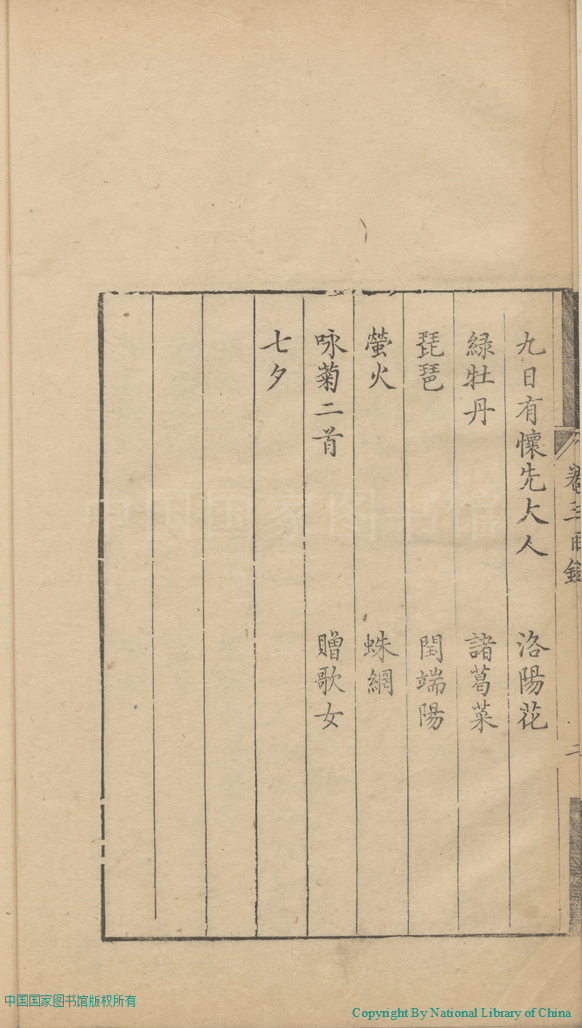 九日有懷先大人　洛陽花
綠牡丹　諸葛菜
琵琶　閏端陽
螢火　蛛網
咏菊二首　贈歌女
七夕
卷三目錄
二
中国国家图书馆
中国国家图书馆版权所有
Copyright By National Library of China